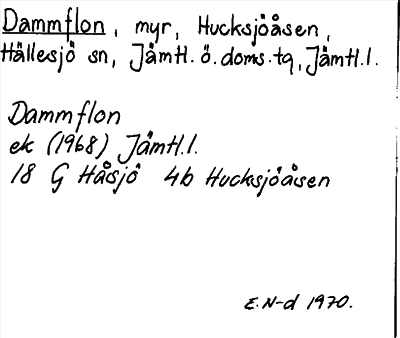 Dammflon, myr, Hucksjöåsen,
Hällesjö sn, Jämtl. ö. doms. tg, Jämtl. l.
Dammflon
ek (1968) Jämtl. l.
18 G Håsjö 4b Hucksjöåsen
E. N-d 1970.